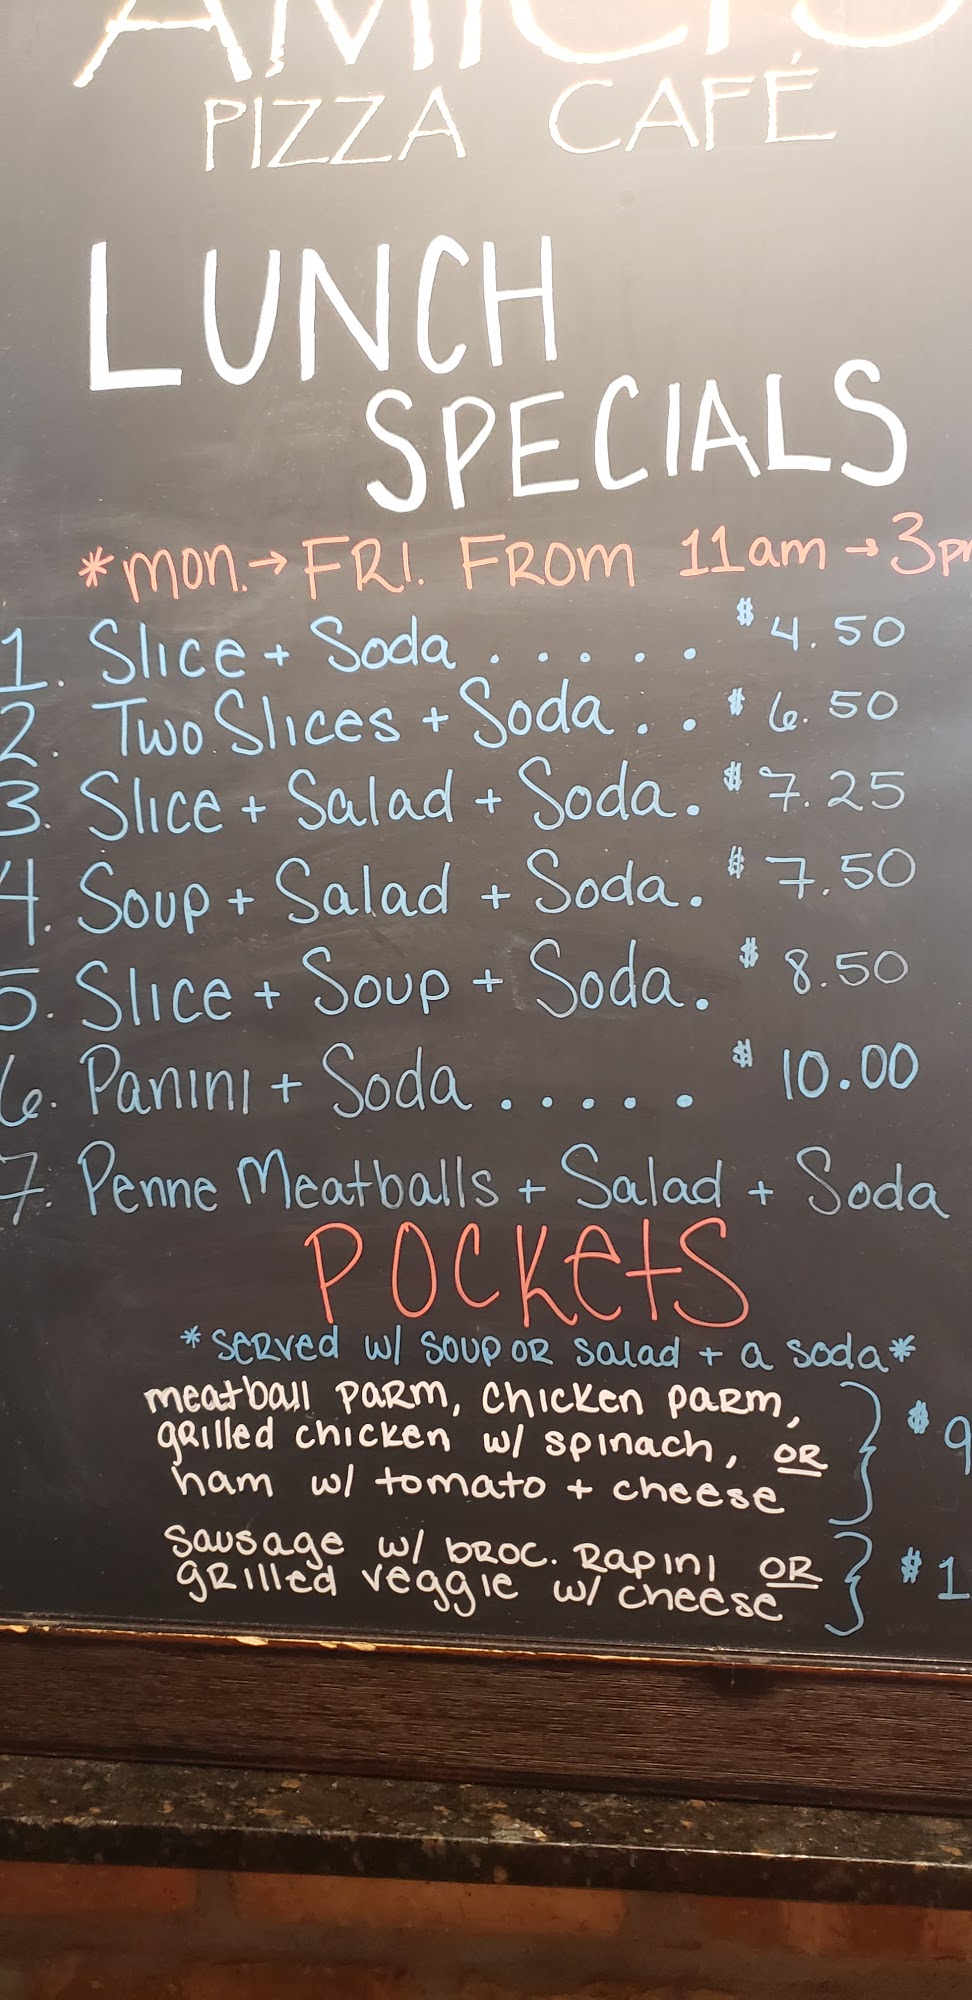 AMICI'S
PIZZA CAFÉ
LUNCH
SPECIALS
*mon.→FRI. FROM 11am→3pm
1. Slice + Soda ..... $4.50
2. Two Slices + Soda .. $6.50
3. Slice + Salad + Soda. $7.25
4. Soup + Salad + Soda. $7.50
5. Slice + Soup + Soda. $8.50
6. Panini + Soda ..... $10.00
7. Penne Meatballs + Salad + Soda
POCKETS
*SERVED w/ SOUP OR salad + a soda*
meatball PARM, chicken PARM,
grilled chicken w/ spinach, OR
ham w/ tomato + cheese } $9
sausage w/ BROC. RAPINI OR
grilled veggie w/ cheese } $1